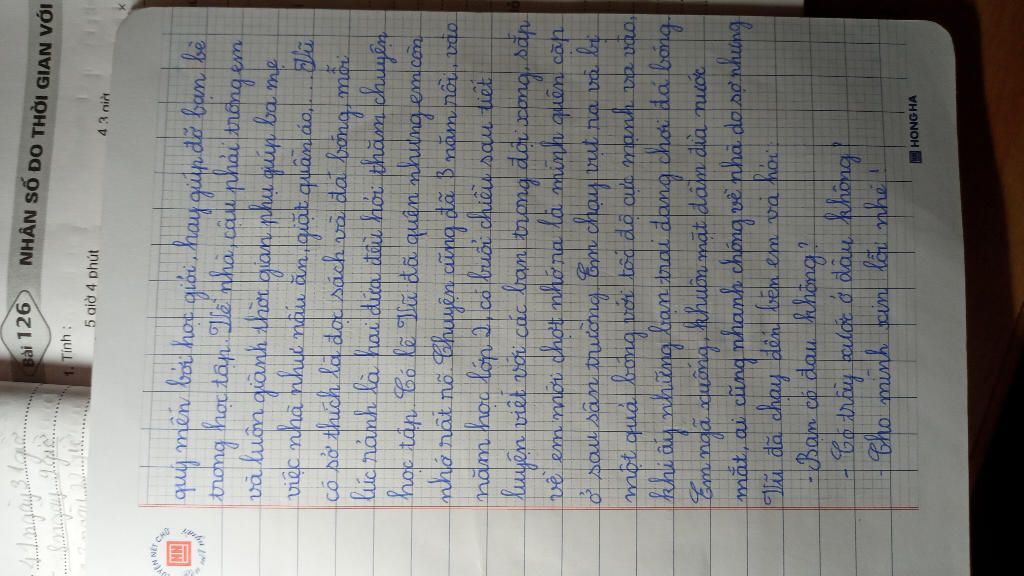 Bài 126 NHÂN SỐ ĐO THỜI GIAN VỚI
1. Tính :
5 giờ 4 phút
4,3 giờ
quý mến bởi học giỏi, hay giúp đỡ bạn bè
trong học tập. Về nhà, cậu phải trông em
và luôn giành thời gian phụ giúp ba mẹ
việc nhà như nấu ăn, giặt quần áo,.... Vũ
có sở thích là đọc sách và đá bóng mỗi
lúc rảnh là hai đứa đều hỏi thăm chuyện
học tập. Có lẽ Vũ đã quên nhưng em còn
nhớ rất rõ. Chuyện cũng đã 3 năm rồi, vào
năm học lớp 2, có buổi chiều sau tiết
luyện viết với các bạn trong đội xong, sắp
về em mới chợt nhớ ra là mình quên cặp
ở sau sân trường. Em chạy vụt ra và bị
một quả bóng với tốc độ cực mạnh va vào,
khi ấy những bạn trai đang chơi đá bóng.
Em ngã xuống, khuôn mặt đầm đìa nước
mắt, ai cũng nhanh chóng về nhà do sợ nhưng
Vũ đã chạy đến bên em và hỏi:
- Bạn có đau không?
- Có trầy xước ở đâu không?
- Cho mình xin lỗi nhé!
HONG HA
LUYỆN NÉT CHỮ
HH